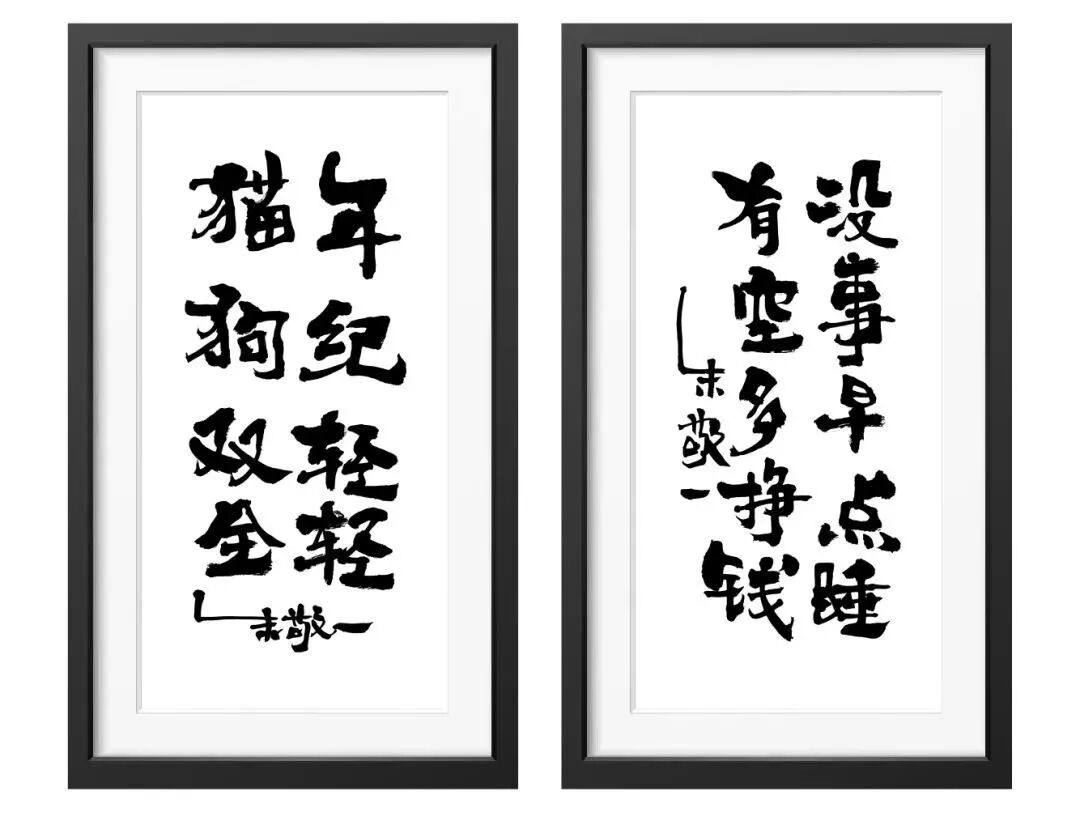 年纪轻轻
猫狗双全
朱敬一
没事早点睡
有空多挣钱
朱敬一